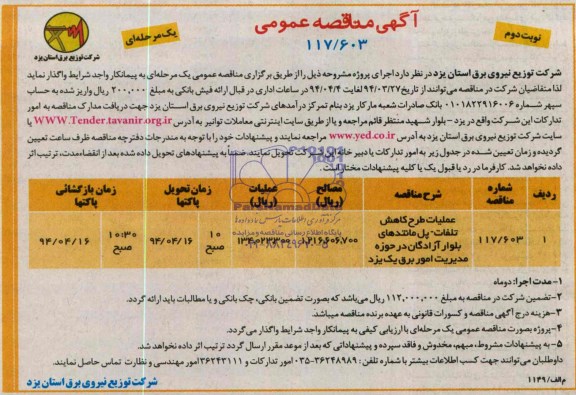 آگهی مناقصه عمومی
نوبت دوم
یک مرحله‌ای
۱۱۷/۶۰۳
شرکت توزیع نیروی برق استان یزد
شرکت توزیع نیروی برق استان یزد در نظر دارد اجرای پروژه مشروحه ذیل را از طریق برگزاری مناقصه عمومی یک مرحله‌ای به پیمانکار واجد شرایط واگذار نماید
لذا متقاضیان شرکت در مناقصه می‌توانند از تاریخ ۹۴/۰۳/۲۷ لغایت ۹۴/۰۴/۴ در ساعات اداری در قبال ارائه فیش بانکی به مبلغ ۲۰۰,۰۰۰ ریال واریز شده به حساب
سپهر شماره ۰۱۰۱۸۲۲۹۱۶۰۰۶ بانک صادرات شعبه مارکار یزد بنام تمرکز درآمدهای شرکت توزیع نیروی برق استان یزد جهت دریافت مدارک مناقصه به امور
تدارکات این شرکت واقع در یزد - بلوار شهید منتظر قائم مراجعه و یا از طریق سایت اینترنتی معاملات توانیر به آدرس WWW.Tender.tavanir.org.ir یا
سایت شرکت توزیع نیروی برق استان یزد به آدرس www.yed.co.ir مراجعه نمایند و پیشنهادات خود را با توجه به مندرجات دفترچه مناقصه ظرف ساعت تعیین
گردیده و زمان تعیین شده در جدول زیر به امور تدارکات یا دبیر خانه این شرکت تحویل نمایند. ضمناً به پیشنهادهای تحویل داده شده بعد از انقضاء مدت، ترتیب اثر
داده نخواهد شد. کارفرما در رد یا قبول یک یا کلیه پیشنهادات مختار است.
ردیف | شماره مناقصه | شرح مناقصه | مصالح (ریال) | عملیات (ریال) | زمان تحویل پاکتها | زمان بازگشائی پاکتها
۱ | ۱۱۷/۶۰۳ | عملیات طرح کاهش تلفات - پل مانندهای بلوار آزادگان در حوزه مدیریت امور برق یک یزد | ۱,۲۱۶,۶۰۶,۷۰۰ | ۹۴/۰۴/۱۶ ۱۰ صبح | ۹۴/۰۴/۱۶ ۱۰:۳۰ صبح
۱- مدت اجرا: دوماه
۲- تضمین شرکت در مناقصه به مبلغ ۱۱۲,۰۰۰,۰۰۰ ریال می‌باشد که بصورت تضمین بانکی، چک بانکی و یا مطالبات باید ارائه گردد.
۳- هزینه درج آگهی مناقصه و کسورات قانونی به عهده برنده مناقصه میباشد.
۴- پروژه بصورت مناقصه عمومی یک مرحله‌ای با ارزیابی کیفی به پیمانکار واجد شرایط واگذار می‌گردد.
۵- به پیشنهادات مشروط، مبهم، مخدوش و فاقد سپرده و پیشنهاداتی که بعد از موعد مقرر ارسال گردد ترتیب اثر داده نخواهد شد.
داوطلبان می‌توانند جهت کسب اطلاعات بیشتر با شماره تلفن: ۳۶۲۴۸۹۸۹-۰۳۵ امور تدارکات و ۳۶۲۴۳۱۱۱ امور مهندسی و نظارت تماس حاصل نمایند.
شرکت توزیع نیروی برق استان یزد
م الف/ ۱۱۴۹